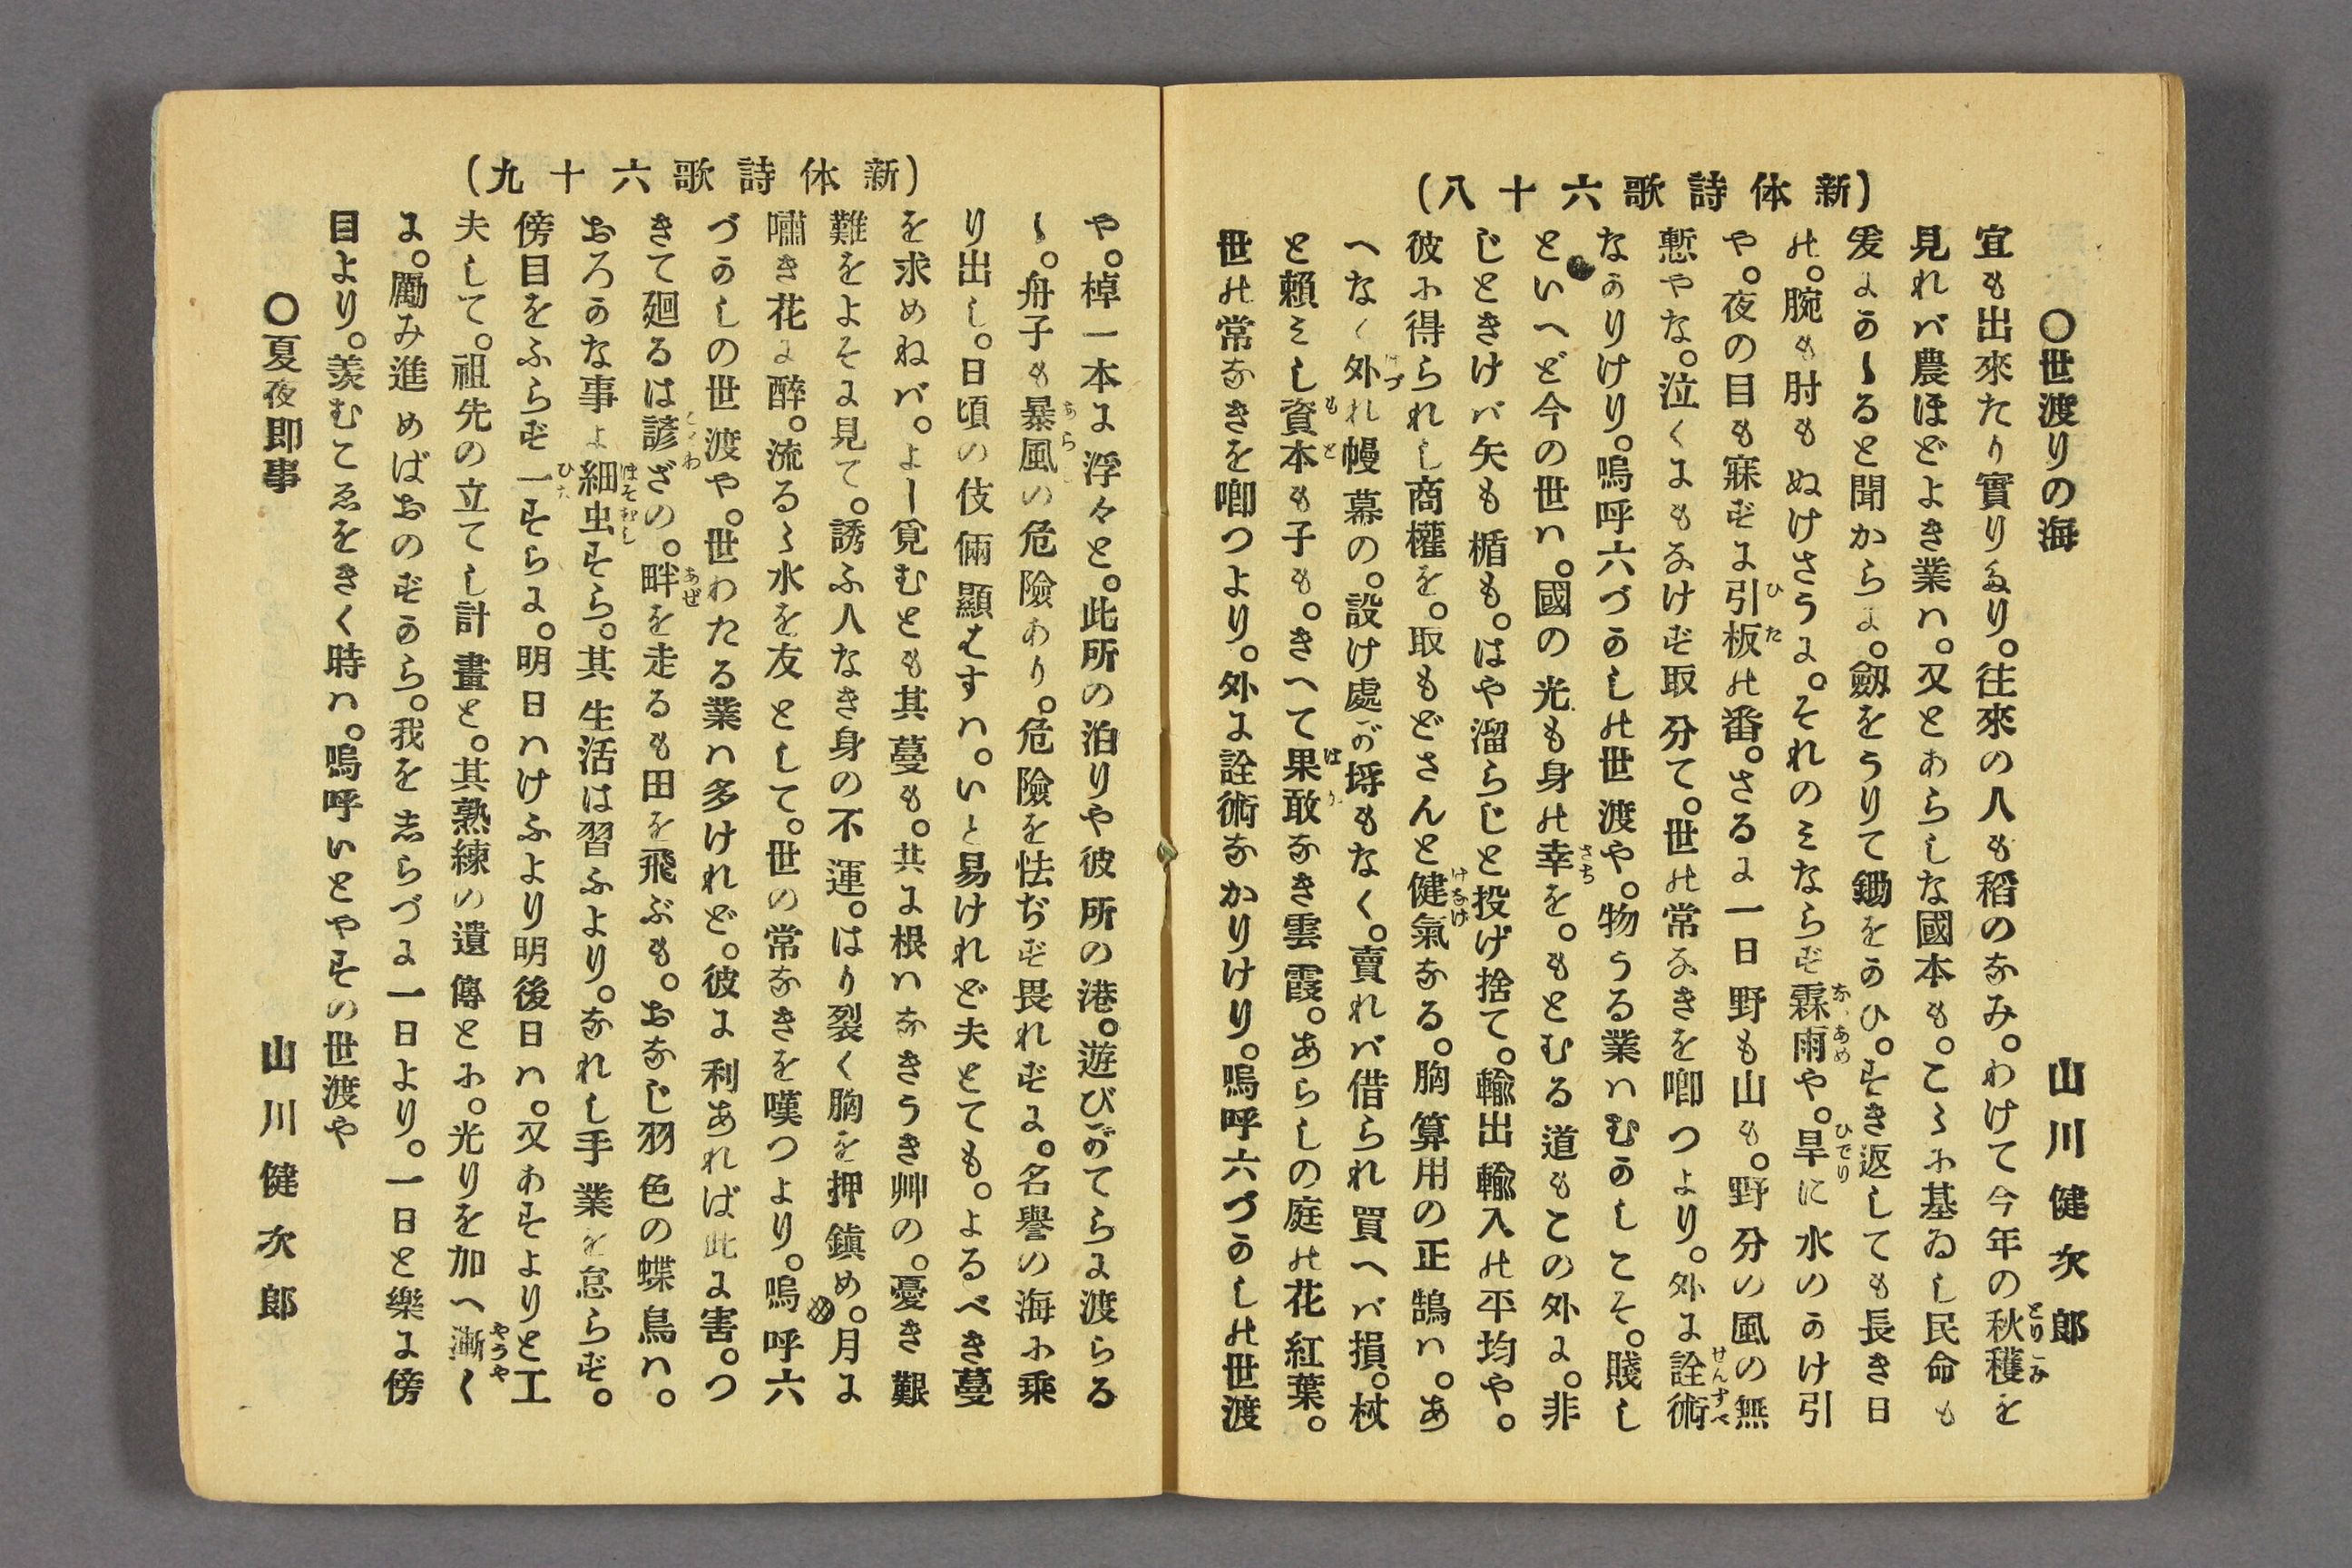 (新体詩歌六十八)
〇世渡りの海　山川健次郎
宜も出來たり實りなり。往來の人も稻のなみ。わけて今年の秋穫を
見れバ農ほどよき業ハ。又とあらしな國本も。こゝに基ゐし民命も
爰にかゝると聞からに。劔をうりて鋤をかひ。すき返しても長き日
の。腕も肘もぬけさうに。それのミならず霖雨や。旱に水のかけ引
や。夜の目も寐ずに引板の番。さるに一日野も山も。野分の風の無
慙やな。泣くにもなけず取分て。世の常なきを喞つより。外に詮術
なかりけり。嗚呼六づかしの世渡や。物うる業ハむかしこそ。賤し
といへど今の世ハ。國の光も身の幸を。もとむる道もこの外に。非
じときけバ矢も楯も。はや溜らじと投げ捨て。輸出輸入の平均や。
彼に得られし商權を。取もどさんと健氣なる。胸算用の正鵠ハ。あ
へなく外れ幔幕の。設け處が埓もなく。賣れバ借られ買へバ損。杖
と賴ミし資本も子も。きへて果敢なき雲霞。あらしの庭の花紅葉。
世の常なきを喞つより。外に詮術なかりけり。嗚呼六づかしの世渡
(新体詩歌六十九)
や。棹一本に浮々と。此所の泊りや彼所の港。遊びがてらに渡らる
ゝ。舟子も暴風の危險あり。危險を怯ぢず畏れずに。名譽の海に乘
り出し。日頃の伎倆顯はすハ。いと易けれど夫とても。よるべき蔓
を求めねバ。よし覓むとも其蔓も。共に根ハなきうき艸の。憂き艱
難をよそに見て。誘ふ人なき身の不運。はり裂く胸を押鎭め。月に
嘯き花に醉。流るゝ水を友として。世の常なきを嘆つより。嗚呼六
づかしの世渡や。世わたる業ハ多けれど。彼に利あれば此に害。つ
きて廻るは諺ざの。畔を走るも田を飛ぶも。おなじ羽色の蝶鳥ハ。
おろかな事よ細虫すら。其生活は習ふより。なれし手業を怠らず。
傍目をふらず一すらに。明日ハけふより明後日ハ。又あすよりと工
夫して。祖先の立てし計畫と。其熟練の遺傳とに。光りを加へ漸く
に。勵み進めばおのずから。我を志らづに一日より。一日と樂に傍
目より。羨むこゑをきく時ハ。嗚呼いとやすの世渡や
〇夏夜即事　山川健次郎